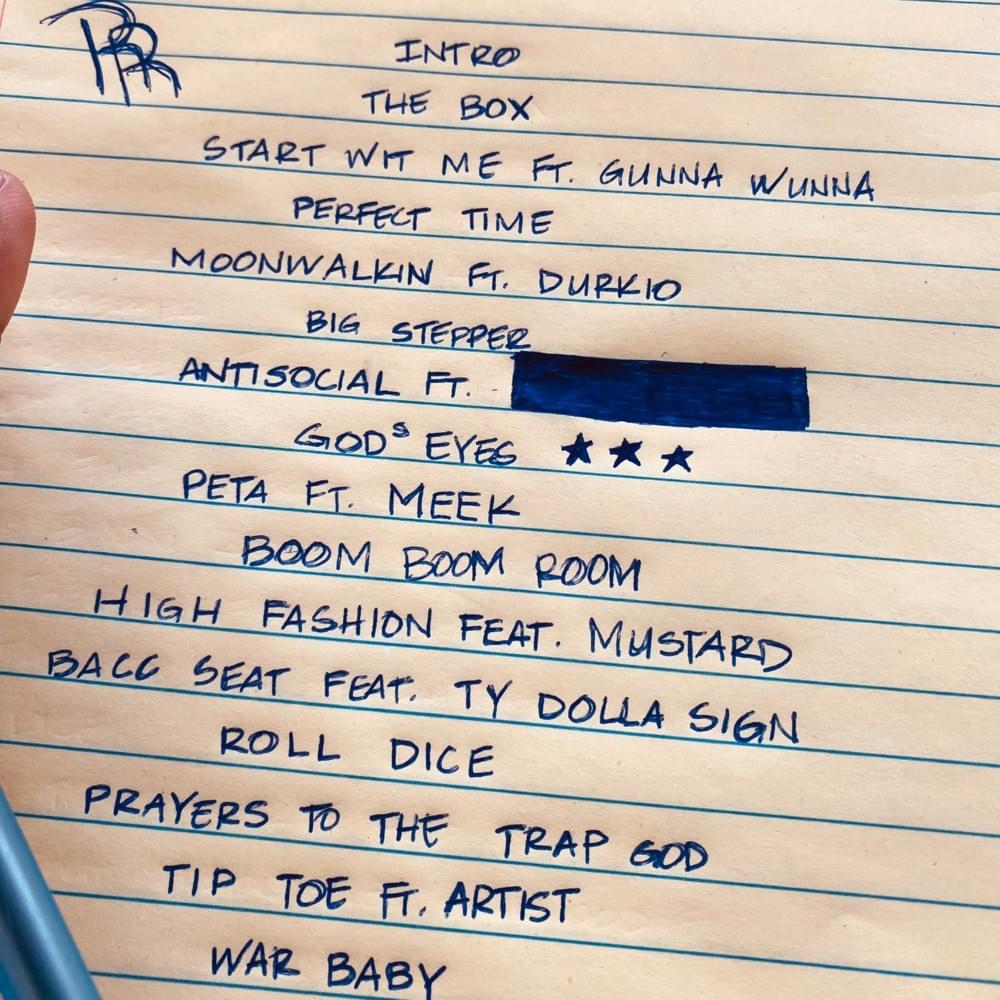 RR
INTRO
THE BOX
START WIT ME FT. GUNNA WUNNA
PERFECT TIME
MOONWALKIN FT. DURKIO
BIG STEPPER
ANTISOCIAL FT.
GODS EYES ★ ★ ★
PETA FT. MEEK
BOOM BOOM ROOM
HIGH FASHION FEAT. MUSTARD
BACC SEAT FEAT. TY DOLLA SIGN
ROLL DICE
PRAYERS TO THE TRAP GOD
TIP TOE FT. ARTIST
WAR BABY